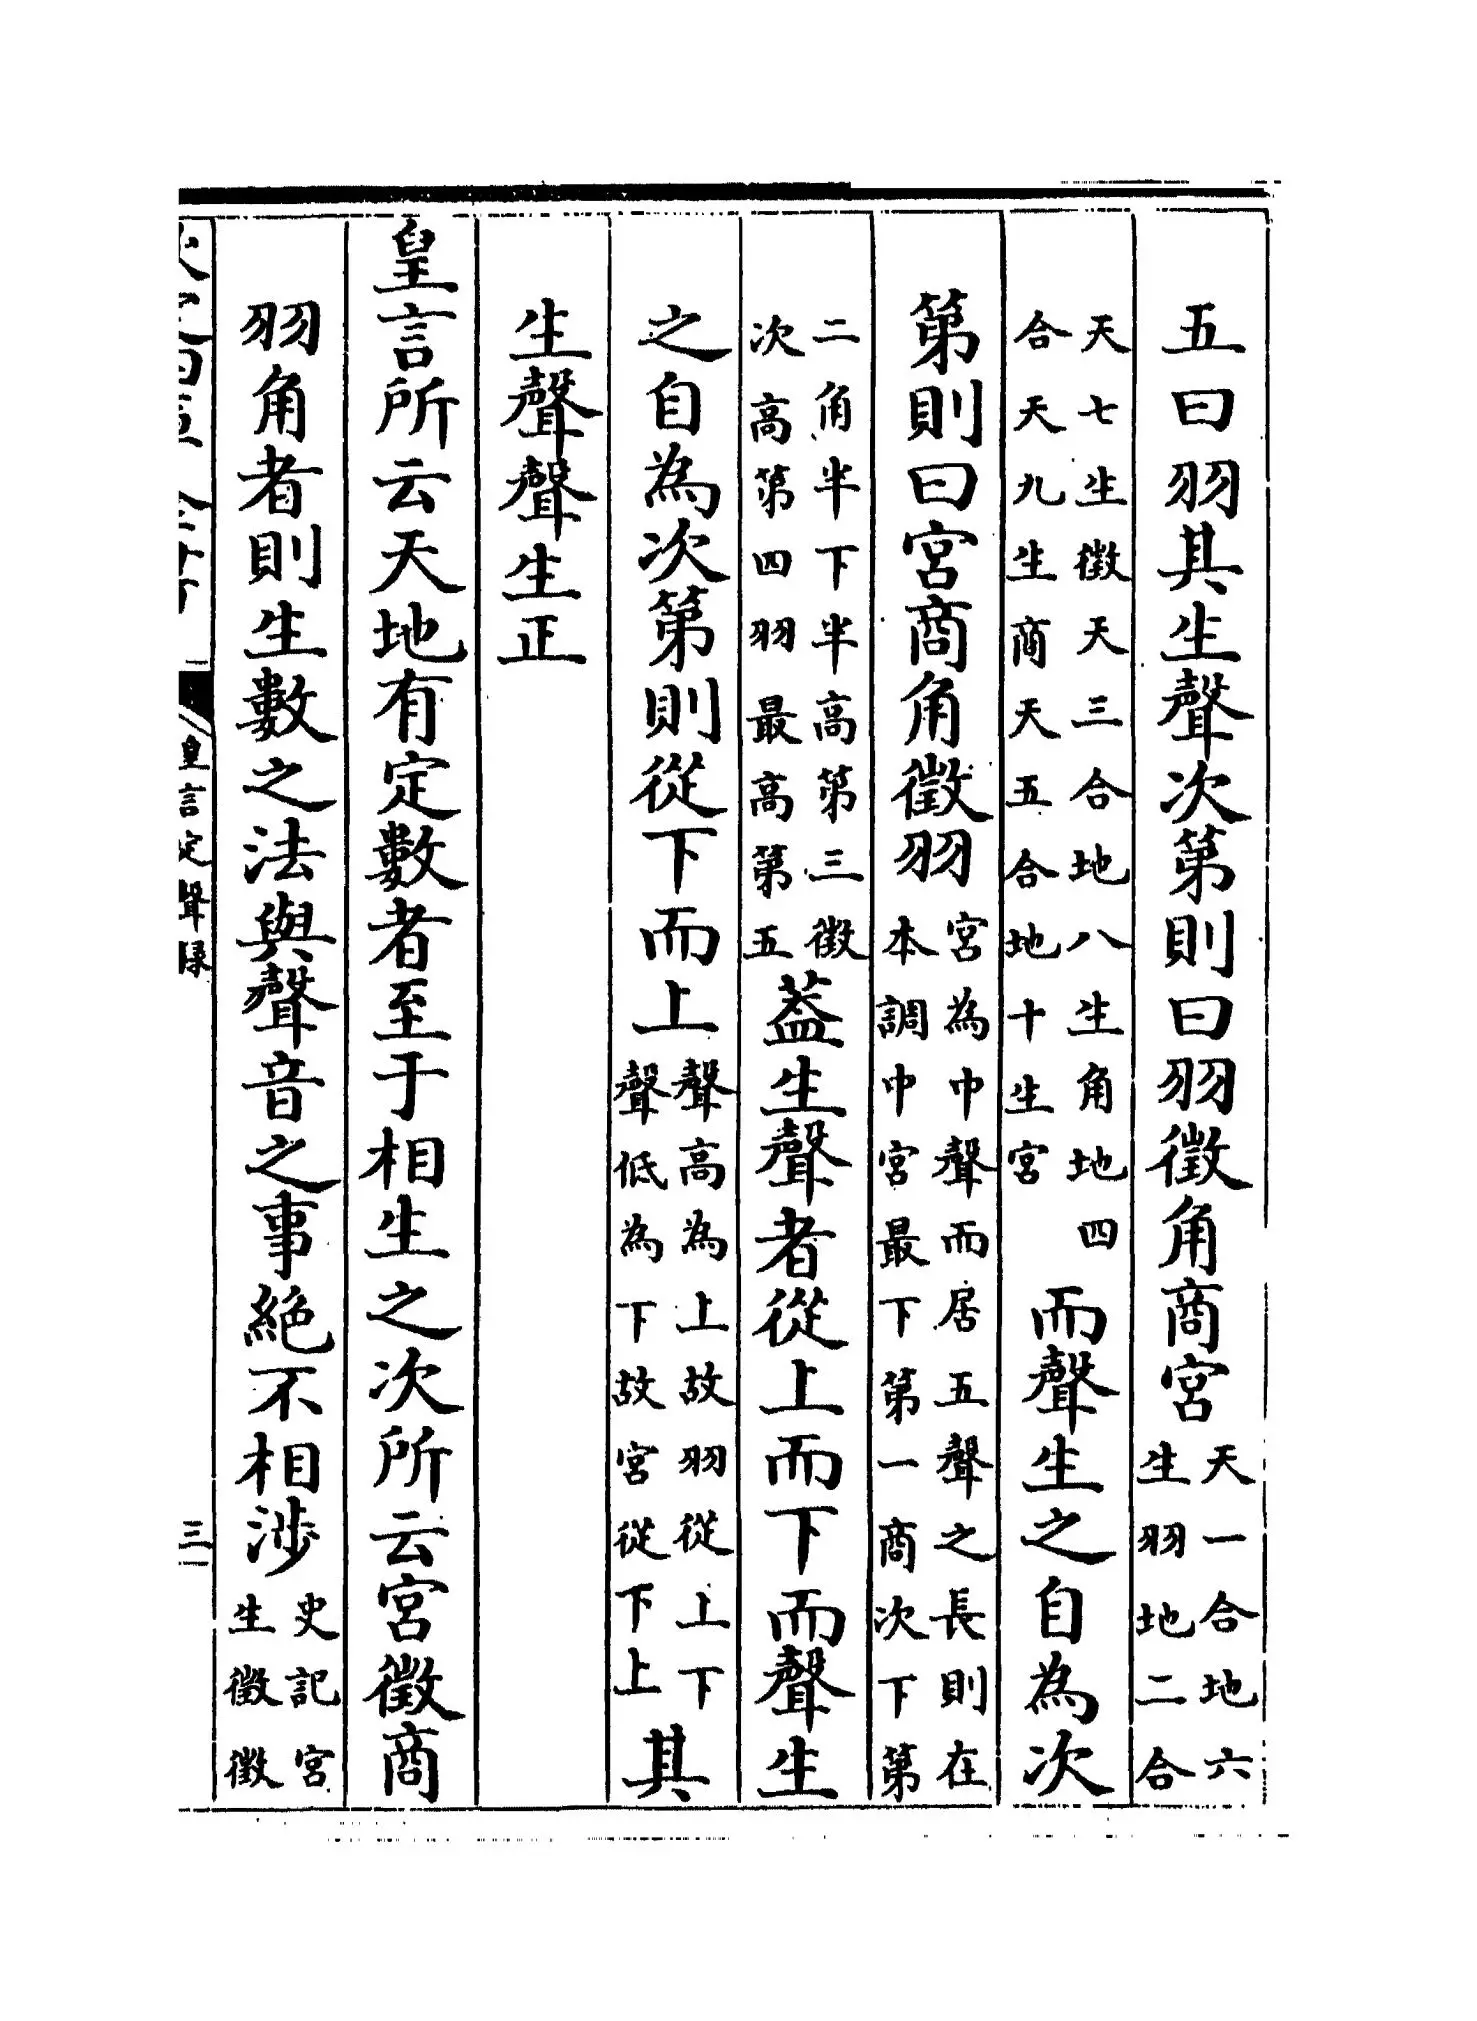 五曰羽其生聲次第則曰羽徵角商宮天一合地六生羽地二合
天七生徵天三合地八生角地四合天九生商天五合地十生宮而聲生之自為次
第則曰宮商角徵羽宮為中聲而居五聲之長則在本調中宮最下第一商次下第
二角半下半高第三徵次高第四羽最高第五葢生聲者從上而下而聲生
之自為次第則從下而上聲高為上故羽從上下聲低為下故宮從下上其
生聲聲生正
皇言所云天地有定數者至于相生之次所云宮徵商
羽角者則生數之法與聲音之事絶不相涉史記宮生徵徵
皇言定聲録
三